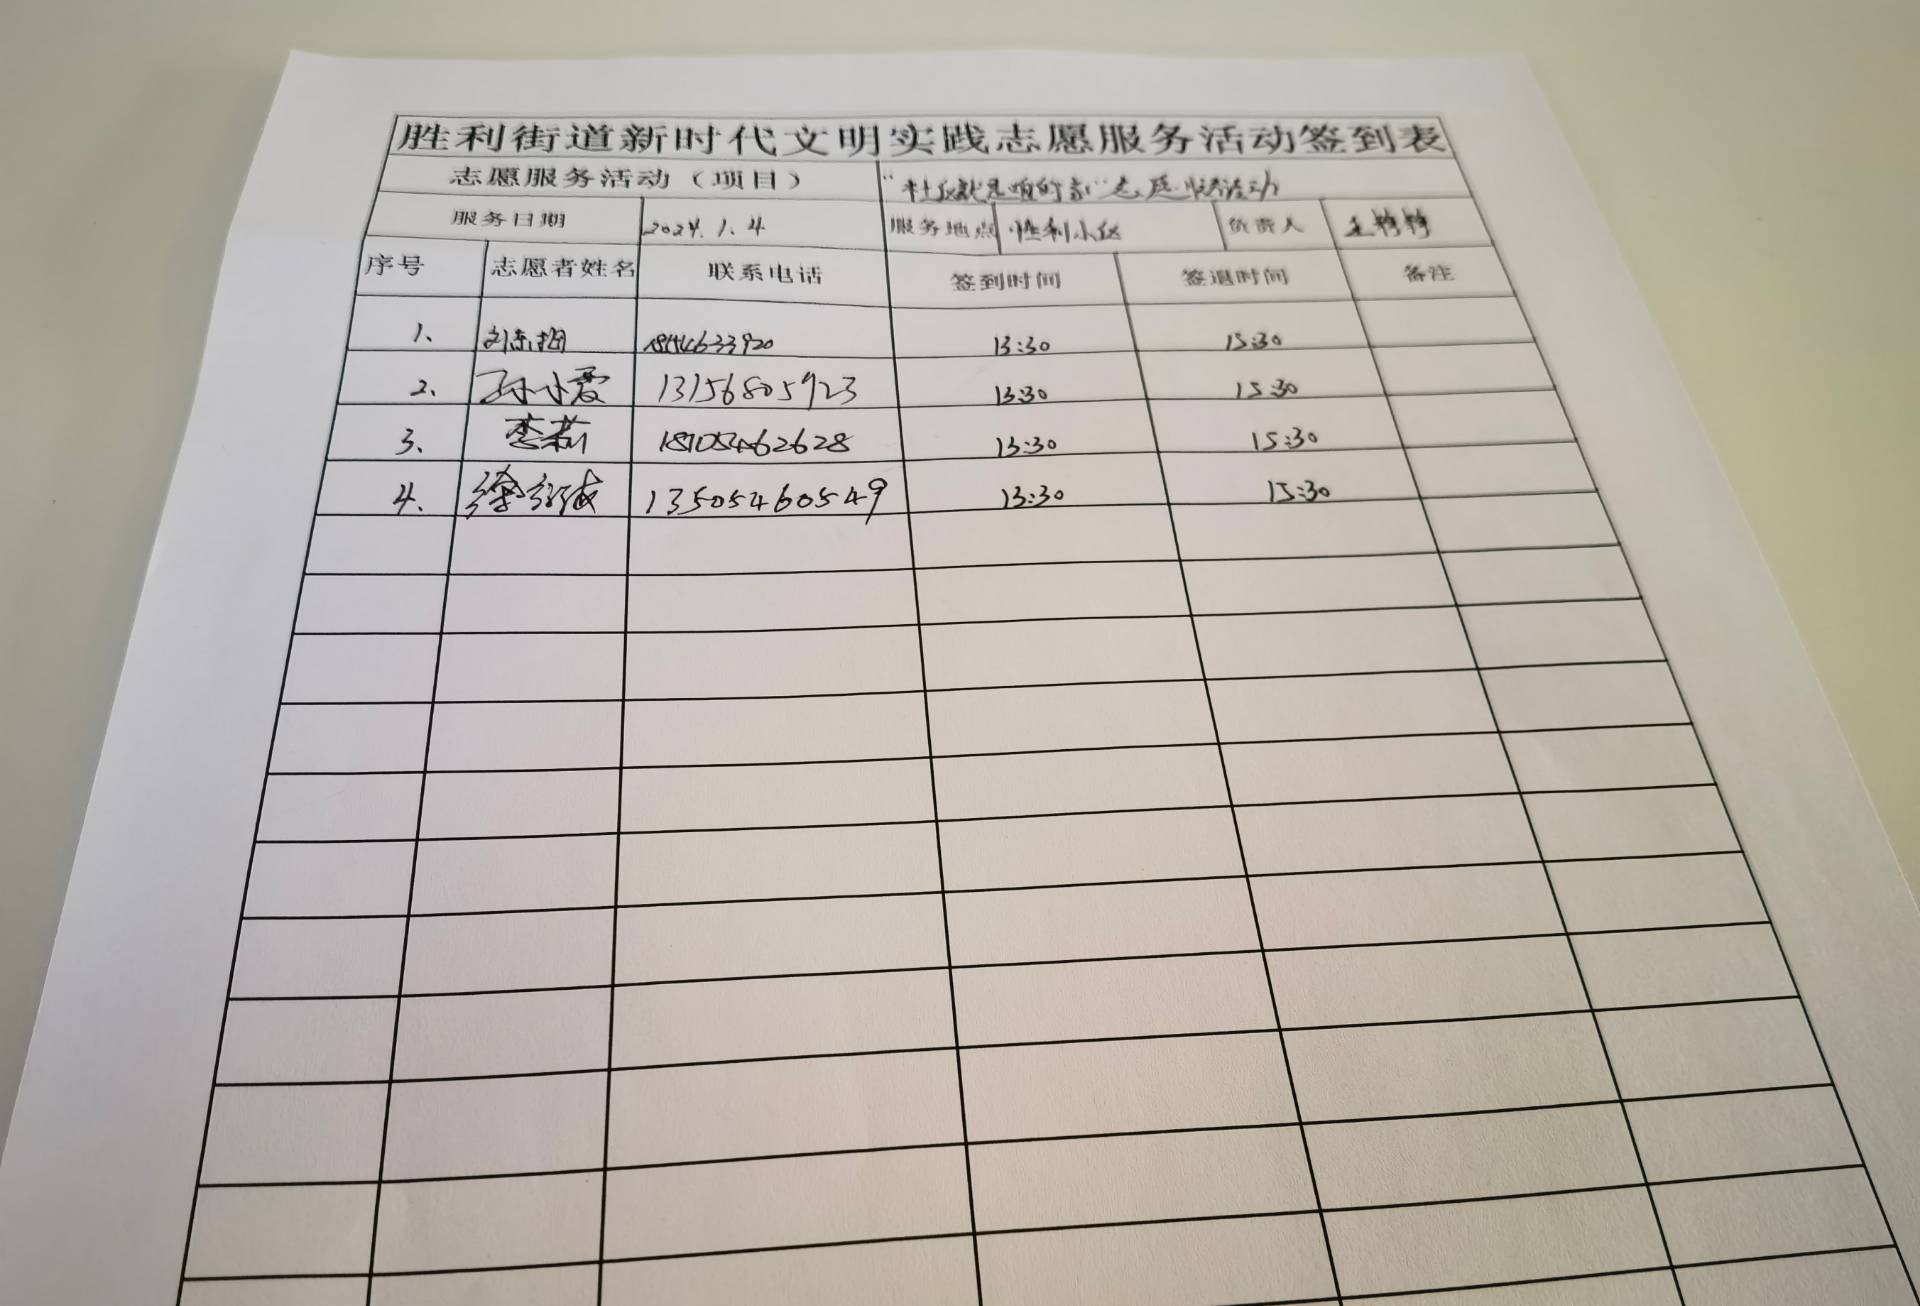 胜利街道新时代文明实践志愿服务活动签到表
志愿服务活动（项目） “社区就是咱的家”志愿服务活动
服务日期 2024.1.4 服务地点 胜利小区 负责人 王
序号 志愿者姓名 联系电话 签到时间 签退时间 备注
1、 刘东梅 13:30 15:30
2、 孙小霞 13156805923 13:30 15:30
3、 李莉 18105462628 13:30 15:30
4、 徐 13505460549 13:30 15:30